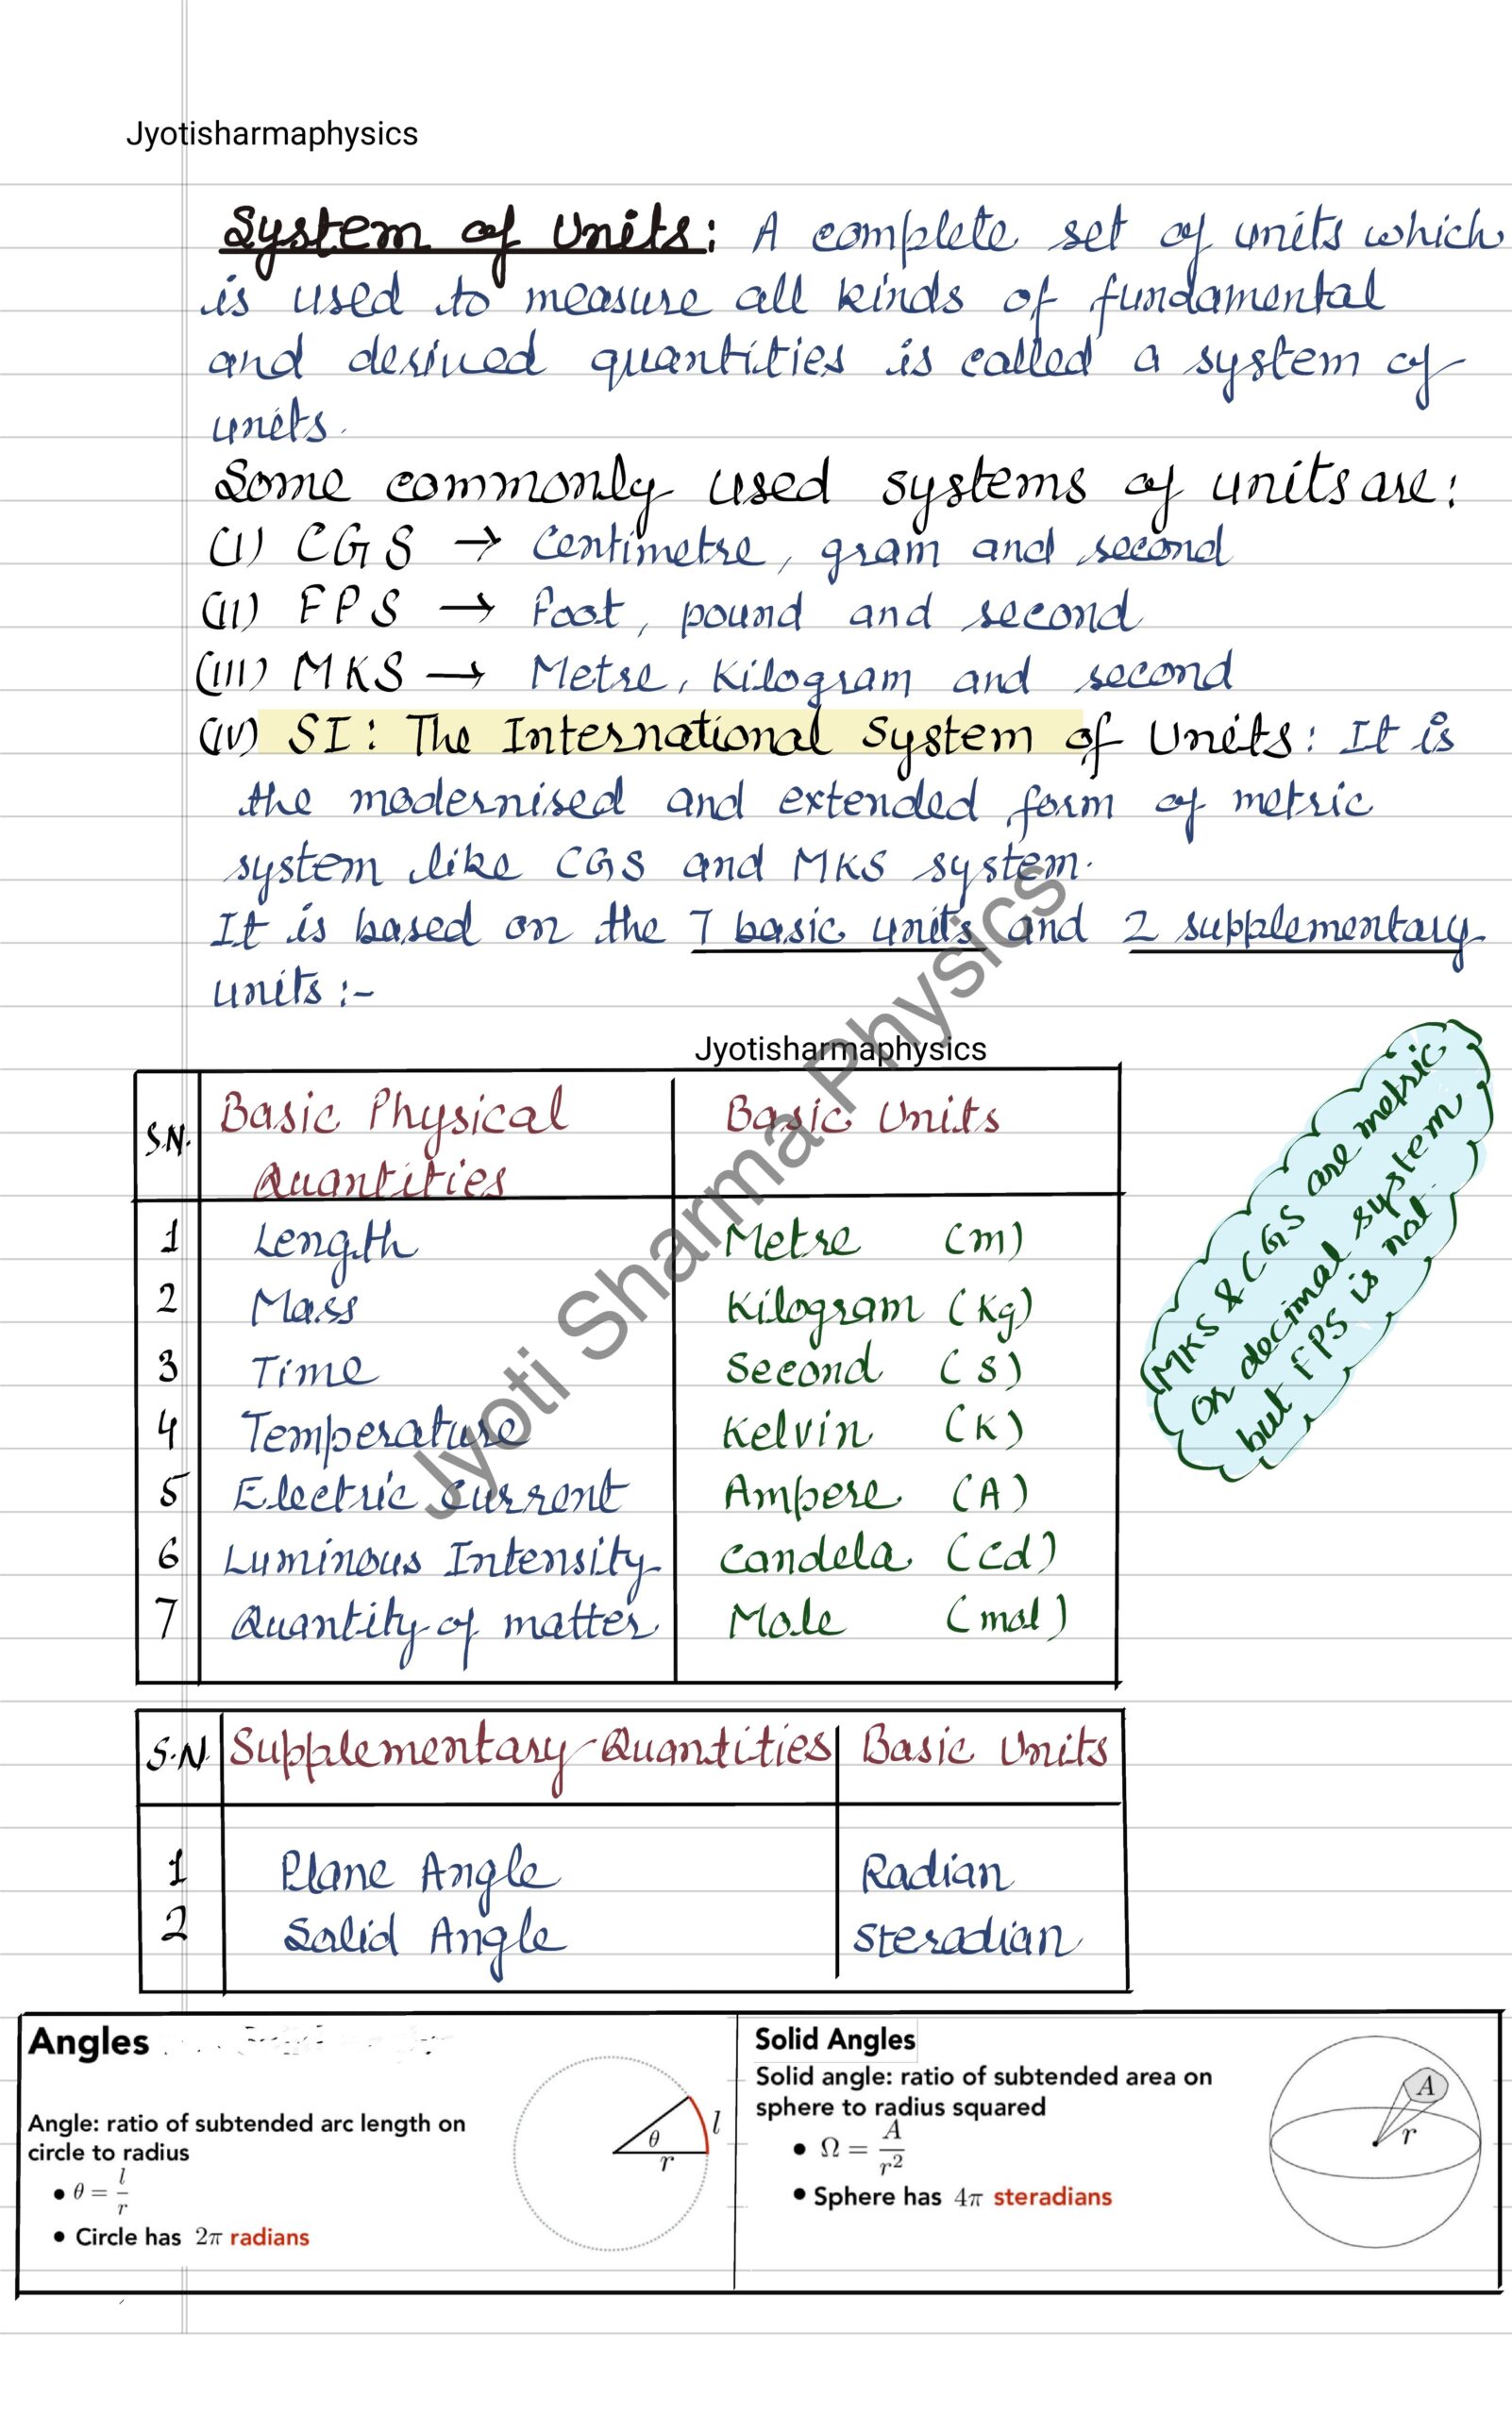 Jyotisharmaphysics
System of Units: A complete set of units which
is used to measure all kinds of fundamental
and derived quantities is called a system of
units.
Some commonly used systems of units are:
(I) CGS → Centimetre, gram and second
(II) FPS → Foot, pound and second
(III) MKS → Metre, Kilogram and second
(IV) SI: The International System of Units: It is
the modernised and extended form of metric
system like CGS and MKS system.
It is based on the 7 basic units and 2 supplementary
units:-
Jyotisharmaphysics
S.N. Basic Physical Quantities Basic Units
1 Length Metre (m)
2 Mass Kilogram (Kg)
3 Time Second (s)
4 Temperature Kelvin (K)
5 Electric Current Ampere (A)
6 Luminous Intensity Candela (cd)
7 Quantity of matter Mole (mol)
(MKS & CGS are metric
or decimal system
but FPS is not.
Jyoti Sharma Physics
S.N. Supplementary Quantities Basic Units
1 Plane Angle Radian
2 Solid Angle Steradian
Angles
Angle: ratio of subtended arc length on
circle to radius
• θ = l/r
• Circle has 2π radians
θ
r
l
Solid Angles
Solid angle: ratio of subtended area on
sphere to radius squared
• Ω = A/r²
• Sphere has 4π steradians
A
r